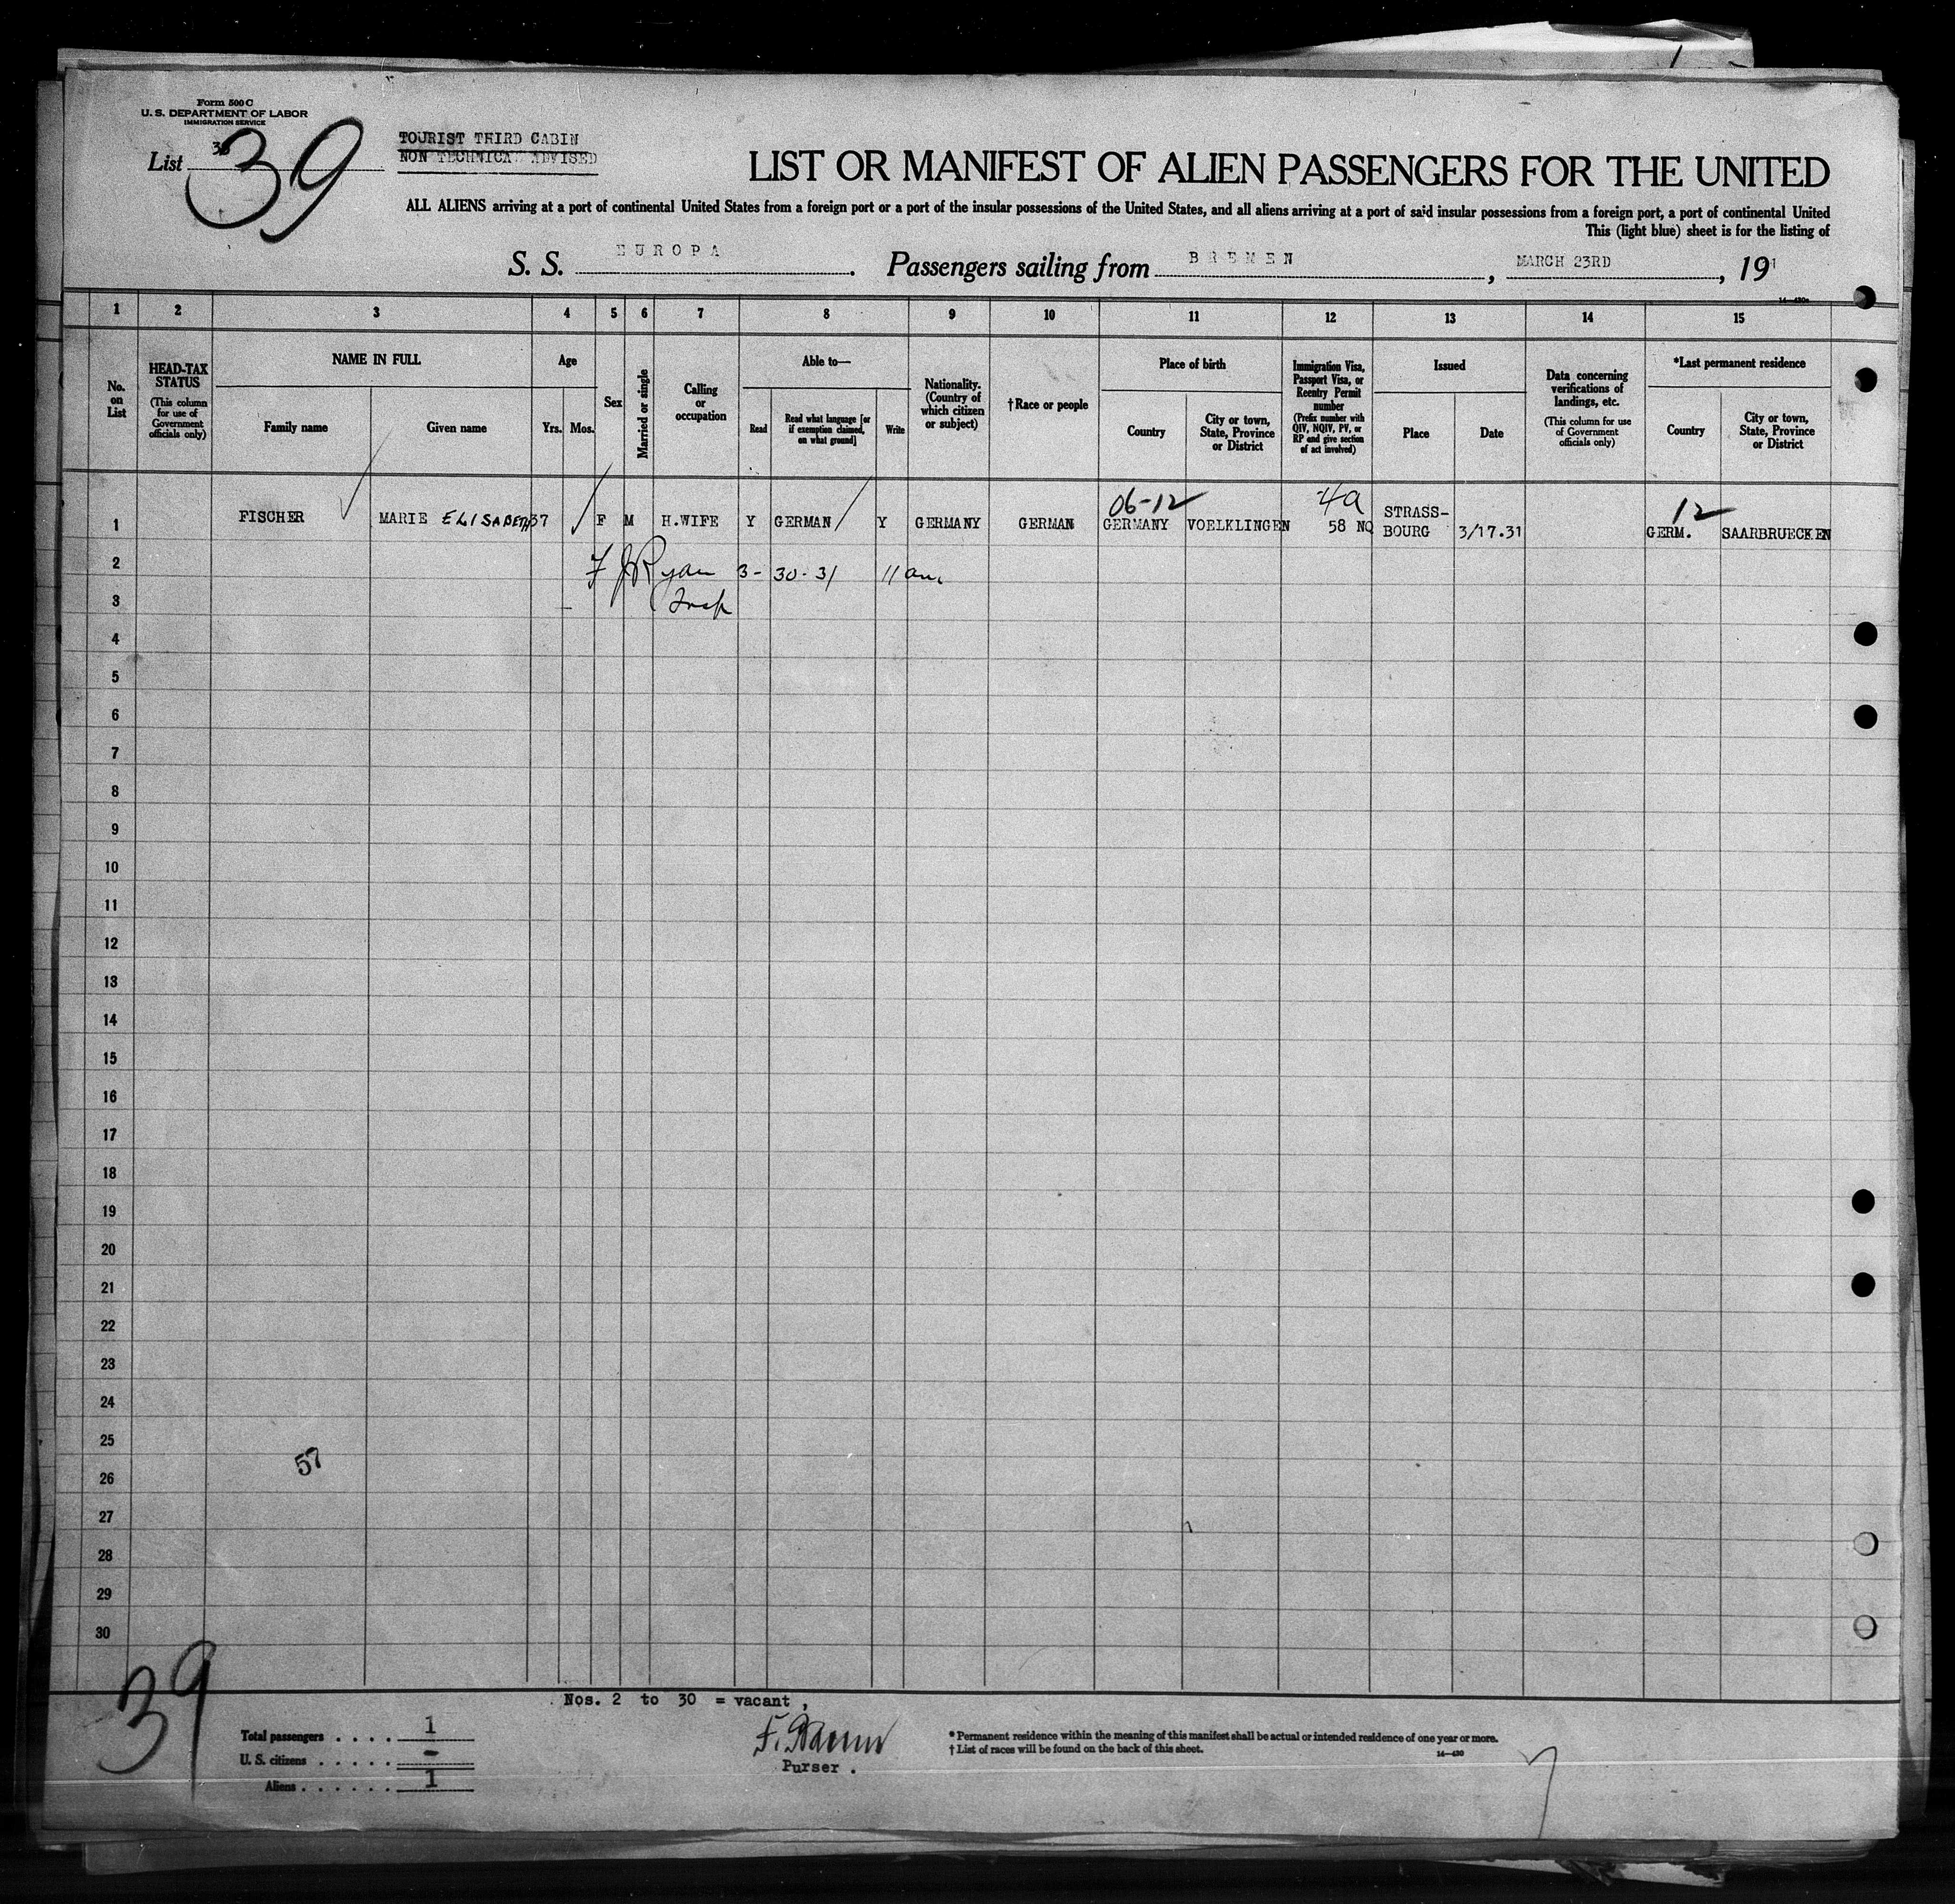 Form 500 C
U. S. DEPARTMENT OF LABOR
IMMIGRATION SERVICE
List 39
TOURIST THIRD CABIN
NON TECHNICAL ADVISED
LIST OR MANIFEST OF ALIEN PASSENGERS FOR THE UNITED
ALL ALIENS arriving at a port of continental United States from a foreign port or a port of the insular possessions of the United States, and all aliens arriving at a port of said insular possessions from a foreign port, a port of continental United
This (light blue) sheet is for the listing of
S. S. EUROPA. Passengers sailing from BREMEN, MARCH 23RD, 191
14—430a
1 2 3 4 5 6 7 8 9 10 11 12 13 14 15
No. on List
HEAD-TAX STATUS
(This column for use of Government officials only)
NAME IN FULL
Family name
Given name
Age
Yrs.
Mos.
Sex
Married or single
Calling or occupation
Able to—
Read
Read what language [or if exemption claimed, on what ground]
Write
Nationality. (Country of which citizen or subject)
†Race or people
Place of birth
Country
City or town, State, Province or District
Immigration Visa, Passport Visa, or Reentry Permit number
(Prefix number with QIV, NQIV, PV, or RP and give section of act involved)
Issued
Place
Date
Data concerning verifications of landings, etc.
(This column for use of Government officials only)
*Last permanent residence
Country
City or town, State, Province or District
06-12 4a 12
1 FISCHER MARIE ELISABETH 37 F M H.WIFE Y GERMAN Y GERMANY GERMAN GERMANY VOELKLINGEN 58 NQ STRASS-BOURG 3/17.31 GERM. SAARBRUECKEN
2 F J Ryan 3-30-31 11 am
3 Insp
4
5
6
7
8
9
10
11
12
13
14
15
16
17
18
19
20
21
22
23
24
25
57
26
27
28
29
30
39
Nos. 2 to 30 = vacant,
Total passengers . . . . 1
U. S. citizens . . . . . -
Aliens . . . . . . 1
Purser .
* Permanent residence within the meaning of this manifest shall be actual or intended residence of one year or more.
† List of races will be found on the back of this sheet.
14—430